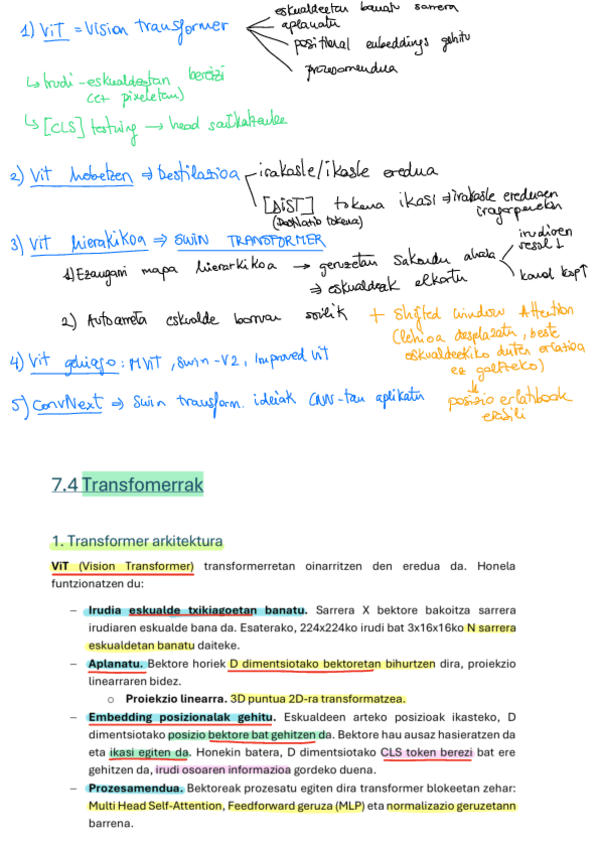 eskualdeetan banatu sarrera
1) ViT = Vision transformer
aplanatu
positional embeddings gehitu
prozesamendua
↳ Irudi-eskualdeetan bereizi
(ez pixeletan)
↳ [CLS] → head sailkatzailea
2) ViT hobetzen ⇒ Destilazioa
irakasle/ikasle eredua
[DIST] tokena ikasi ⇒ irakasle ereduaren
(Destilatio tokena) iragarpenekin
3) ViT hierarkikoa ⇒ SWIN TRANSFORMER
1) Ezaugarri mapa hierarkikoa → geruzetan sakondu ahala
irudiaren
resol ↓
kanal kop ↑
⇒ eskualdeak elkartu
2) Autoarreta eskualde barruan soilik + Shifted window Attention
(leihoa desplazatu, beste
eskualdeekiko duten erlazioa
ez galtzeko)
↓
posizio erlatiboak
erabili
4) ViT gehiago: MViT, Swin-V2, Improved vit
5) ConvNext ⇒ Swin transform. ideiak CNN-tan aplikatu
7.4 Transfomerrak
1. Transformer arkitektura
ViT (Vision Transformer) transformerretan oinarritzen den eredua da. Honela
funtzionatzen du:
− Irudia eskualde txikiagoetan banatu. Sarrera X bektore bakoitza sarrera
irudiaren eskualde bana da. Esaterako, 224x224ko irudi bat 3x16x16ko N sarrera
eskualdetan banatu daiteke.
− Aplanatu. Bektore horiek D dimentsiotako bektoretan bihurtzen dira, proiekzio
linearraren bidez.
o Proiekzio linearra. 3D puntua 2D-ra transformatzea.
− Embedding posizionalak gehitu. Eskualdeen arteko posizioak ikasteko, D
dimentsiotako posizio bektore bat gehitzen da. Bektore hau ausaz hasieratzen da
eta ikasi egiten da. Honekin batera, D dimentsiotako CLS token berezi bat ere
gehitzen da, irudi osoaren informazioa gordeko duena.
− Prozesamendua. Bektoreak prozesatu egiten dira transformer blokeetan zehar:
Multi Head Self-Attention, Feedforward geruza (MLP) eta normalizazio geruzetann
barrena.